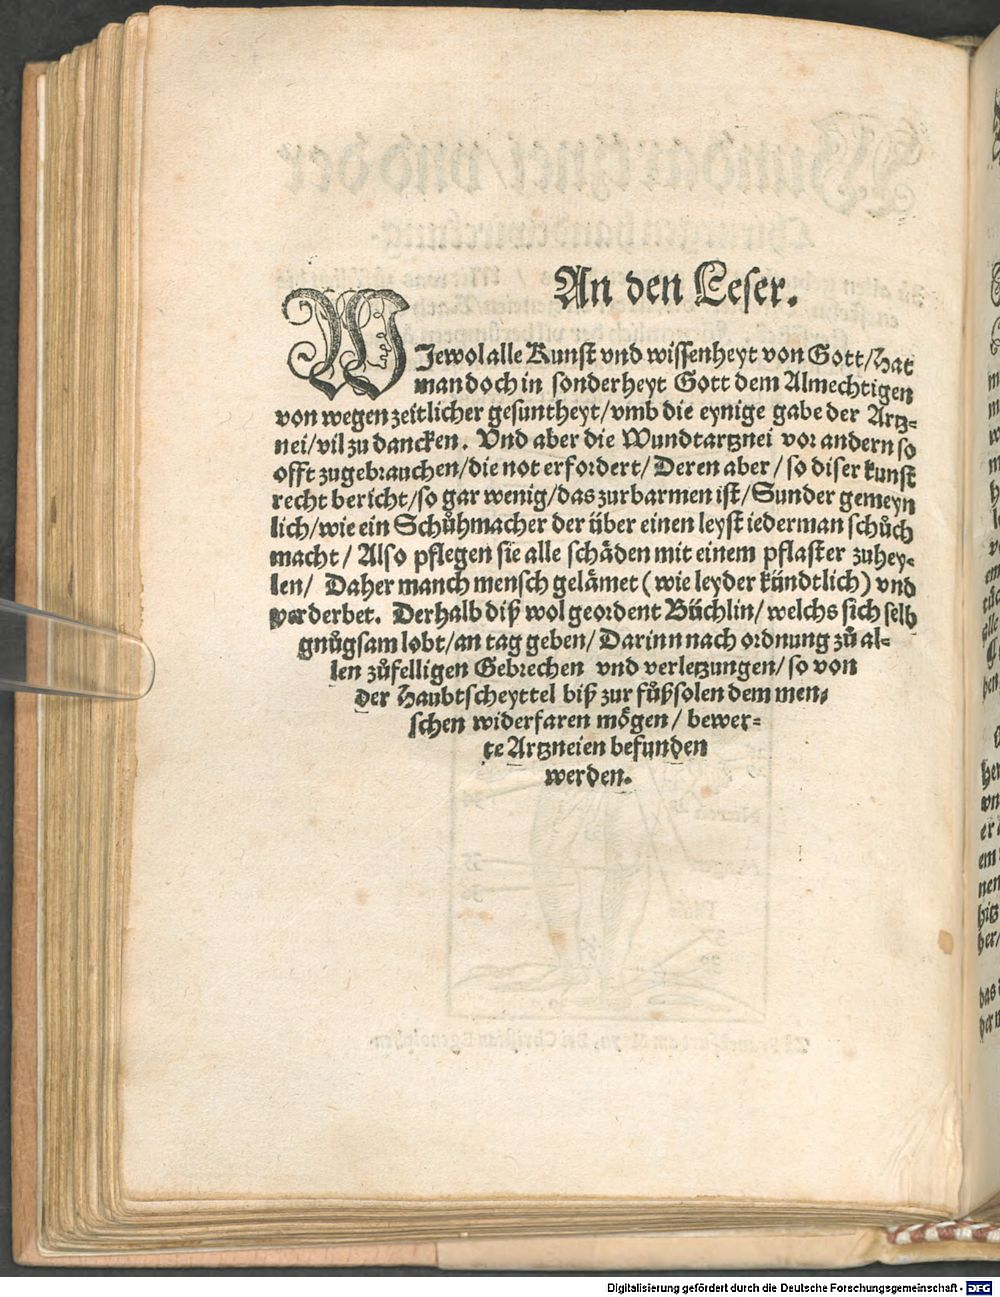 An den Leser.
WJewol alle Kunst vnd wissenheyt von Gott/hat
man doch in sonderheyt Gott dem Almechtigen
von wegen zeitlicher gesuntheyt/vmb die eynige gabe der Artz-
nei/vil zu dancken. Vnd aber die Wundtartznei vor andern so
offt zugebrauchen/die not erfordert/Deren aber/so diser kunst
recht bericht/so gar wenig/das zurbarmen ist/Sunder gemeyn
lich/wie ein Schuͦhmacher der über einen leyst iederman schuͦch
macht/Also pflegen sie alle schäden mit einem pflaster zuhey-
len/ Daher manch mensch gelämet (wie leyder kündtlich) vnd
verderbet. Derhalb diß wol geordent Büchlin/welchs sich selb
gnuͦgsam lobt/an tag geben/Darinn nach ordnung zuͦ al-
len zuͦfelligen Gebrechen vnd verletzungen/so von
der Haubtscheyttel biß zur fuͦßsolen dem men-
schen widerfaren mögen/bewer-
te Artzneien befunden
werden.
Digitalisierung gefördert durch die Deutsche Forschungsgemeinschaft - DFG